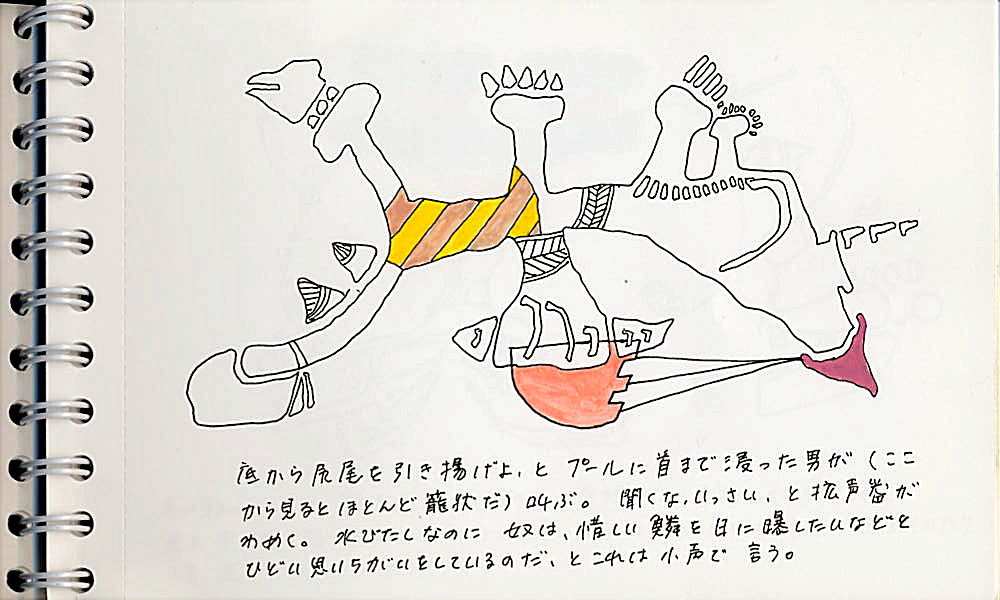 底から尻尾を引き揚げよ、と プールに首まで浸った男が (ここ
から見るとほとんど籠状だ) 叫ぶ。 聞くな、いっさい、と拡声器が
わめく。 水びたしなのに 奴は、惜しい鱗を日に曝したいなどと
ひどい思いちがいをしているのだ、とこれは小声で 言う。